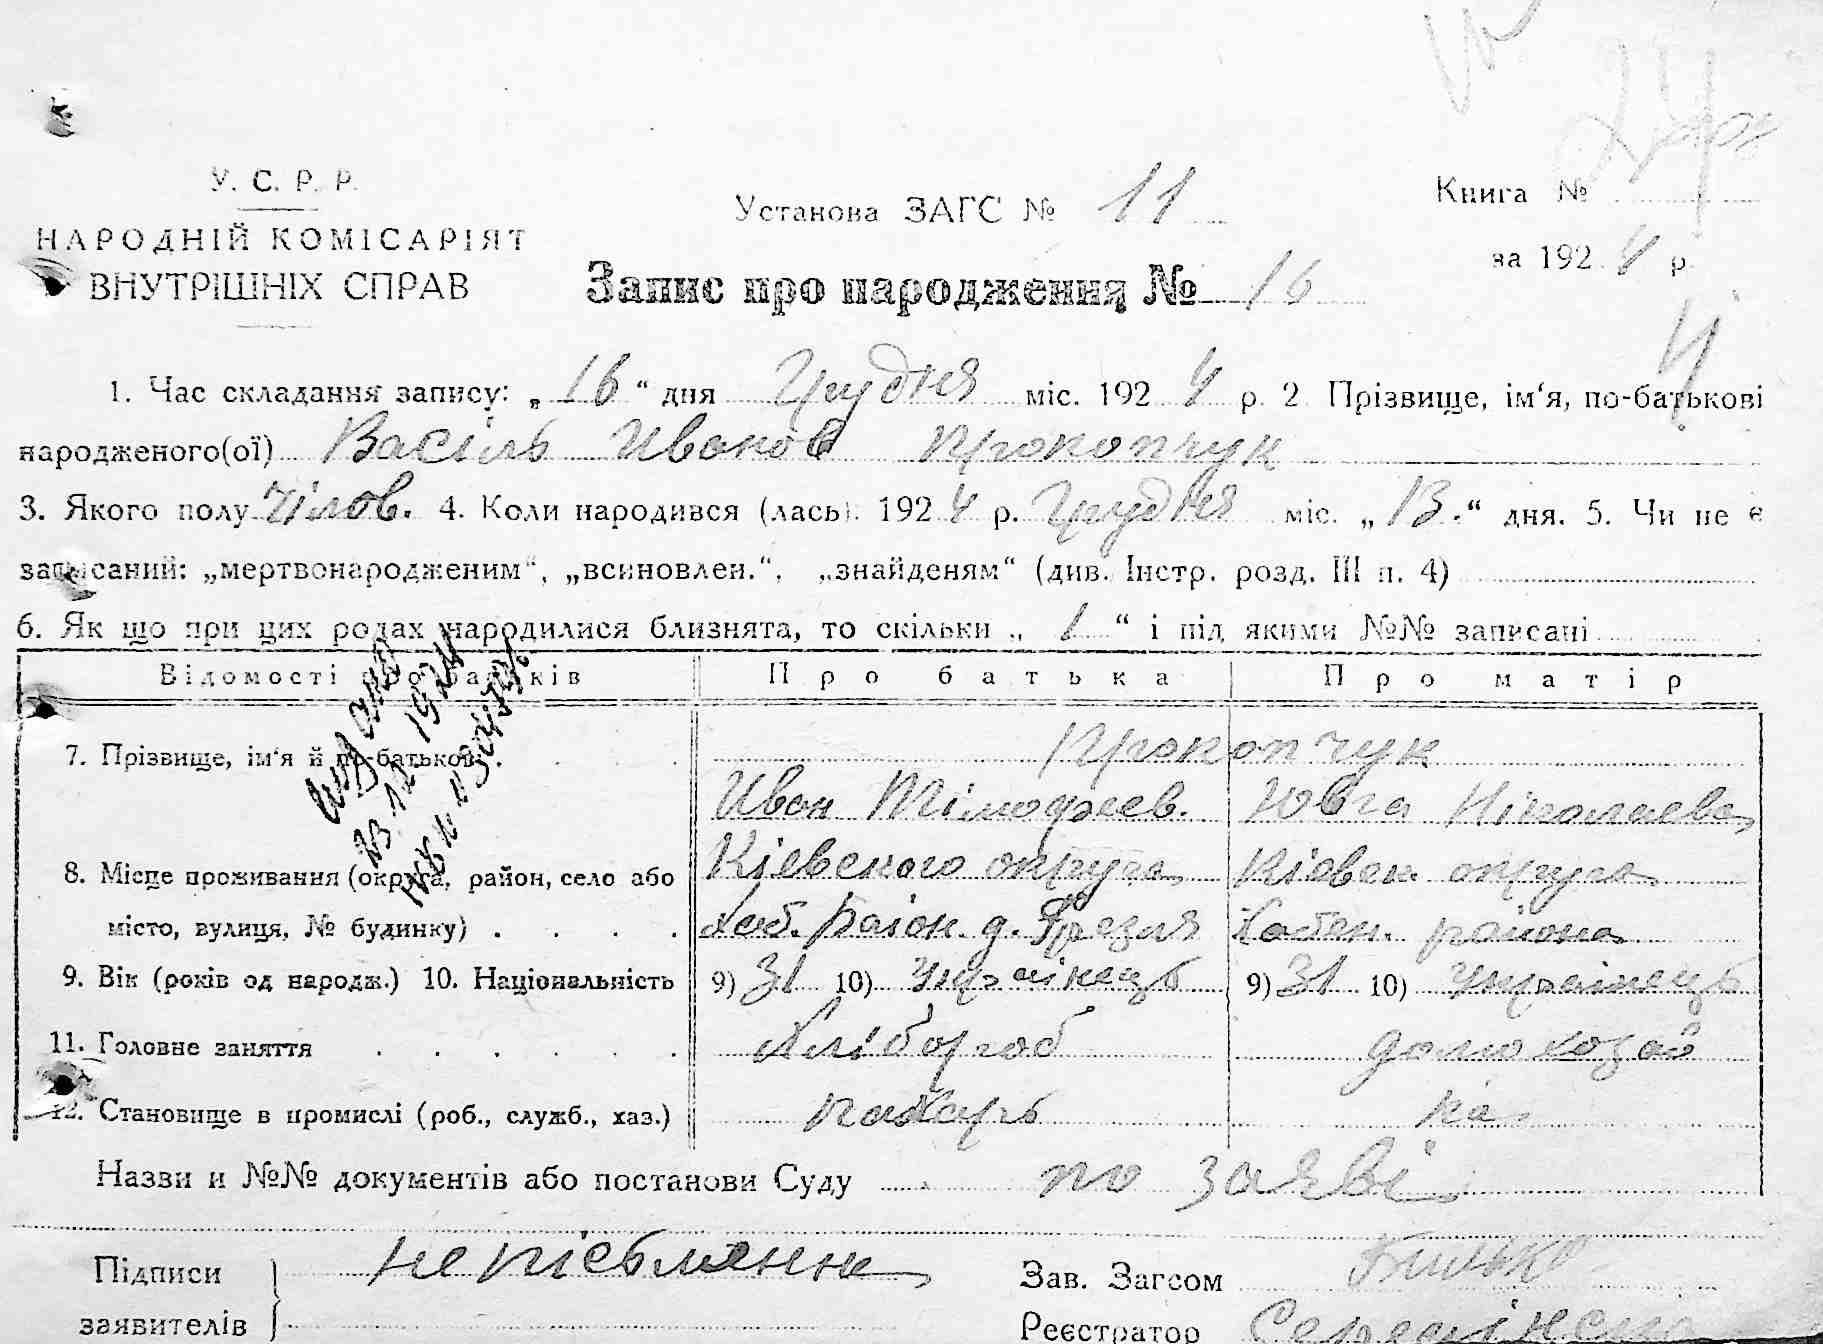 У. С. Р. Р.
НАРОДНІЙ КОМІСАРІЯТ
ВНУТРІШНІХ СПРАВ
Установа ЗАГС № 11
Книга №
за 1924 р.
Запис про народження № 16
1. Час складання запису: „16“ дня Грудня міс. 1924 р. 2 Прізвище, ім‘я, по-батькові
народженого(ої) Васіль Иванов Прокопчук
3. Якого полу Чілов. 4. Коли народився (лась). 1924 р. Грудня міс. „13.“ дня. 5. Чи не є
записаний: „мертвонародженим“, „всиновлен.“, „знайденям“ (див. Інстр. розд. III п. 4)
6. Як що при цих родах народилися близнята, то скільки „1“ і під якими №№ записані
Відомості про батьків Про батька Про матір
7. Прізвище, ім‘я й по-батькові Прокопчук
Иван Тімофеев. Ювга Ніколаева
8. Місце проживання (округа, район, село або Кіевского округа Кіевск. округа
місто, вулиця, № будинку) Хаб. Район. д. Грезля Хабен. района
9. Вік (років од народж.) 10. Національність 9) 31 10) Украінець 9) 31 10) Украінець
11. Головне заняття Хлібороб домохозяй
12. Становище в промислі (роб., служб., хаз.) пахарь ка
Видано
23.12 1924
Назви и №№ документів або постанови Суду по заяві
Підписи заявителів неписьменни
Зав. Загсом
Реєстратор